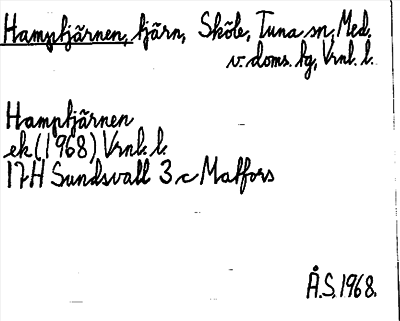 Hamptjärnen, tjärn, Sköle, Tuna sn, Med.
v. doms. hg, Vrnl. l.
Hamptjärnen
ek (1968) Vrnl. l.
17H Sundsvall 3 c Matfors
Å.S. 1968.